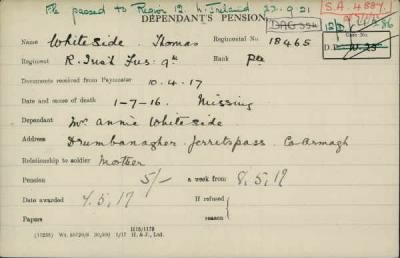 File passed to Region 12. N. Ireland 23.9.21
S.A. 4884
DEPENDANT'S PENSION
Name Whiteside Thomas Regimental No. 18465
Case No.
Regiment R. Inis'l Fus. 9th Rank Pte
Documents received from Paymaster 10.4.17
Date and cause of death 1-7-16. Missing
Dependant Mrs Annie Whiteside
Address Drumbanagher. Jerritspass. Co Armagh
Relationship to soldier Mother
Pension 5/- a week from 8.5.17
Date awarded 4.5.17 If refused
Papers reason
H. & J., Ltd.